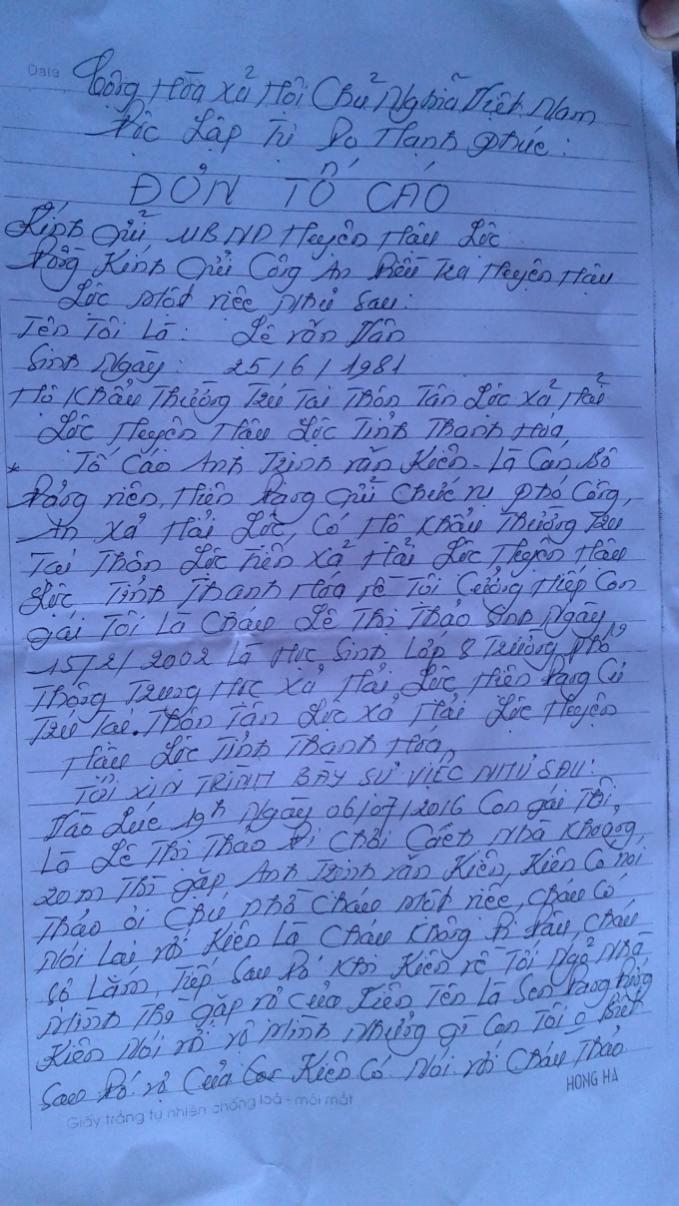 Date
Cộng Hòa xã Hội Chủ Nghĩa Việt Nam
Độc Lập Tự Do Hạnh Phúc:
ĐƠN TỐ CÁO
Kính Gửi UBND Huyện Hậu Lộc
Đồng Kính Gửi Công An Điều Tra Huyện Hậu
Lộc Một việc Như Sau:
Tên Tôi Là: Lê văn Vân
Sinh Ngày: 25/6/1981
Hộ Khẩu Thường Trú Tại Thôn Tân Lộc xã Hải
Lộc Huyện Hậu Lộc Tỉnh Thanh Hóa,
* Tố Cáo Anh Trịnh văn Kiên - Là Cán Bộ
Đảng viên, Hiện Đang Giữ Chức vụ Phó Công,
An xã Hải Lộc, Có Hộ Khẩu Thường Trú
Tại Thôn Lộc Tiên xã Hải Lộc Huyện Hậu
Lộc Tỉnh Thanh Hóa về Tội Cưởng Hiếp Con
gái Tôi Là Cháu Lê Thị Thảo Sinh Ngày
15/2/2002 Là Học Sinh Lớp 8 Trường Phổ
Thông Trung Học xã Hải Lộc Hiện Đang Cư
Trú Tại. Thôn Tân Lộc xã Hải Lộc Huyện
Hậu Lộc Tỉnh Thanh Hóa,
TÔI XIN TRÌNH BÀY SỰ VIỆC NHƯ SAU:
Vào Lúc 19h Ngày 06/07/2016 Con gái Tôi,
Là Lê Thị Thảo Đi Chơi Cách Nhà Khoảng,
20m Thì gặp Anh Trịnh văn Kiên, Kiên Có nói
Thảo ơi Chú Nhờ Cháu Một việc, Cháu Có
Nói Lại với Kiên Là Cháu Không Đi Đâu, Cháu
Sợ Lắm, Tiếp Sau Đó Khi Kiên về Tới Ngỏ Nhà
Mình Thì gặp vợ của Kiên Tên Là Sen Đang đứng
Kiên Nói với vợ Mình Những gì Con Tôi o Biết
Sau Đó vợ Của Kiên Có Nói với Cháu Thảo
HONG HA
Giấy trắng tự nhiên chống loá - mỏi mắt